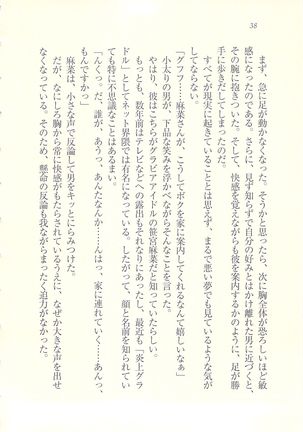 38
まず、急に足が動かなくなった。そうかと思ったら、次に胸全体が恐ろしいほど敏
感になったのである。さらに、見ず知らずで自分の好みとはかけ離れた男に近づくと、
その腕に抱きついた。そして、快感を覚えながらも彼を案内するかのように、足が勝
手に歩きだしてしまったのだ。
すべてが現実に起きていることとは思えず、まるで悪い夢でも見ているような気が
してならない。
「グフフ……麻菜さんが、こうしてボクを家に案内してくれるなんて嬉しいなぁ」
小太りの男が、下品な笑みを浮かべながらそんなことを言った。
やはり、彼はこちらがグラビアアイドルの笹宮麻菜だと知っていたらしい。
もっとも、数年前はテレビなどへの露出もそれなりにあったし、最近も「炎上グラ
ドル」としてネット界隈では有名になっている。したがって、顔と名前を知られてい
ても特に不思議なことはあるまい。
「んくっ。だ、誰が、あうっ、あんたなんか……んはっ、家に連れていく……あんっ、
もんですかっ」
麻菜は、小さな声で反論して男をキッとにらみつけた。
だが、なにしろ胸から常に快感がもたらされているうえに、なぜか大きな声を出せ
なくなっている。そのため、懸命の反論も我ながらまったく迫力がなかった。